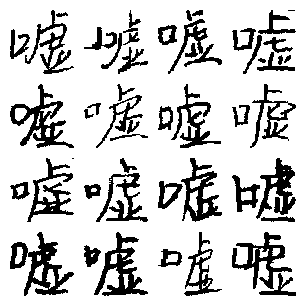 嘘嘘嘘嘘
嘘嘘嘘嘘
嘘嘘嘘嘘
嘘嘘嘘嘘